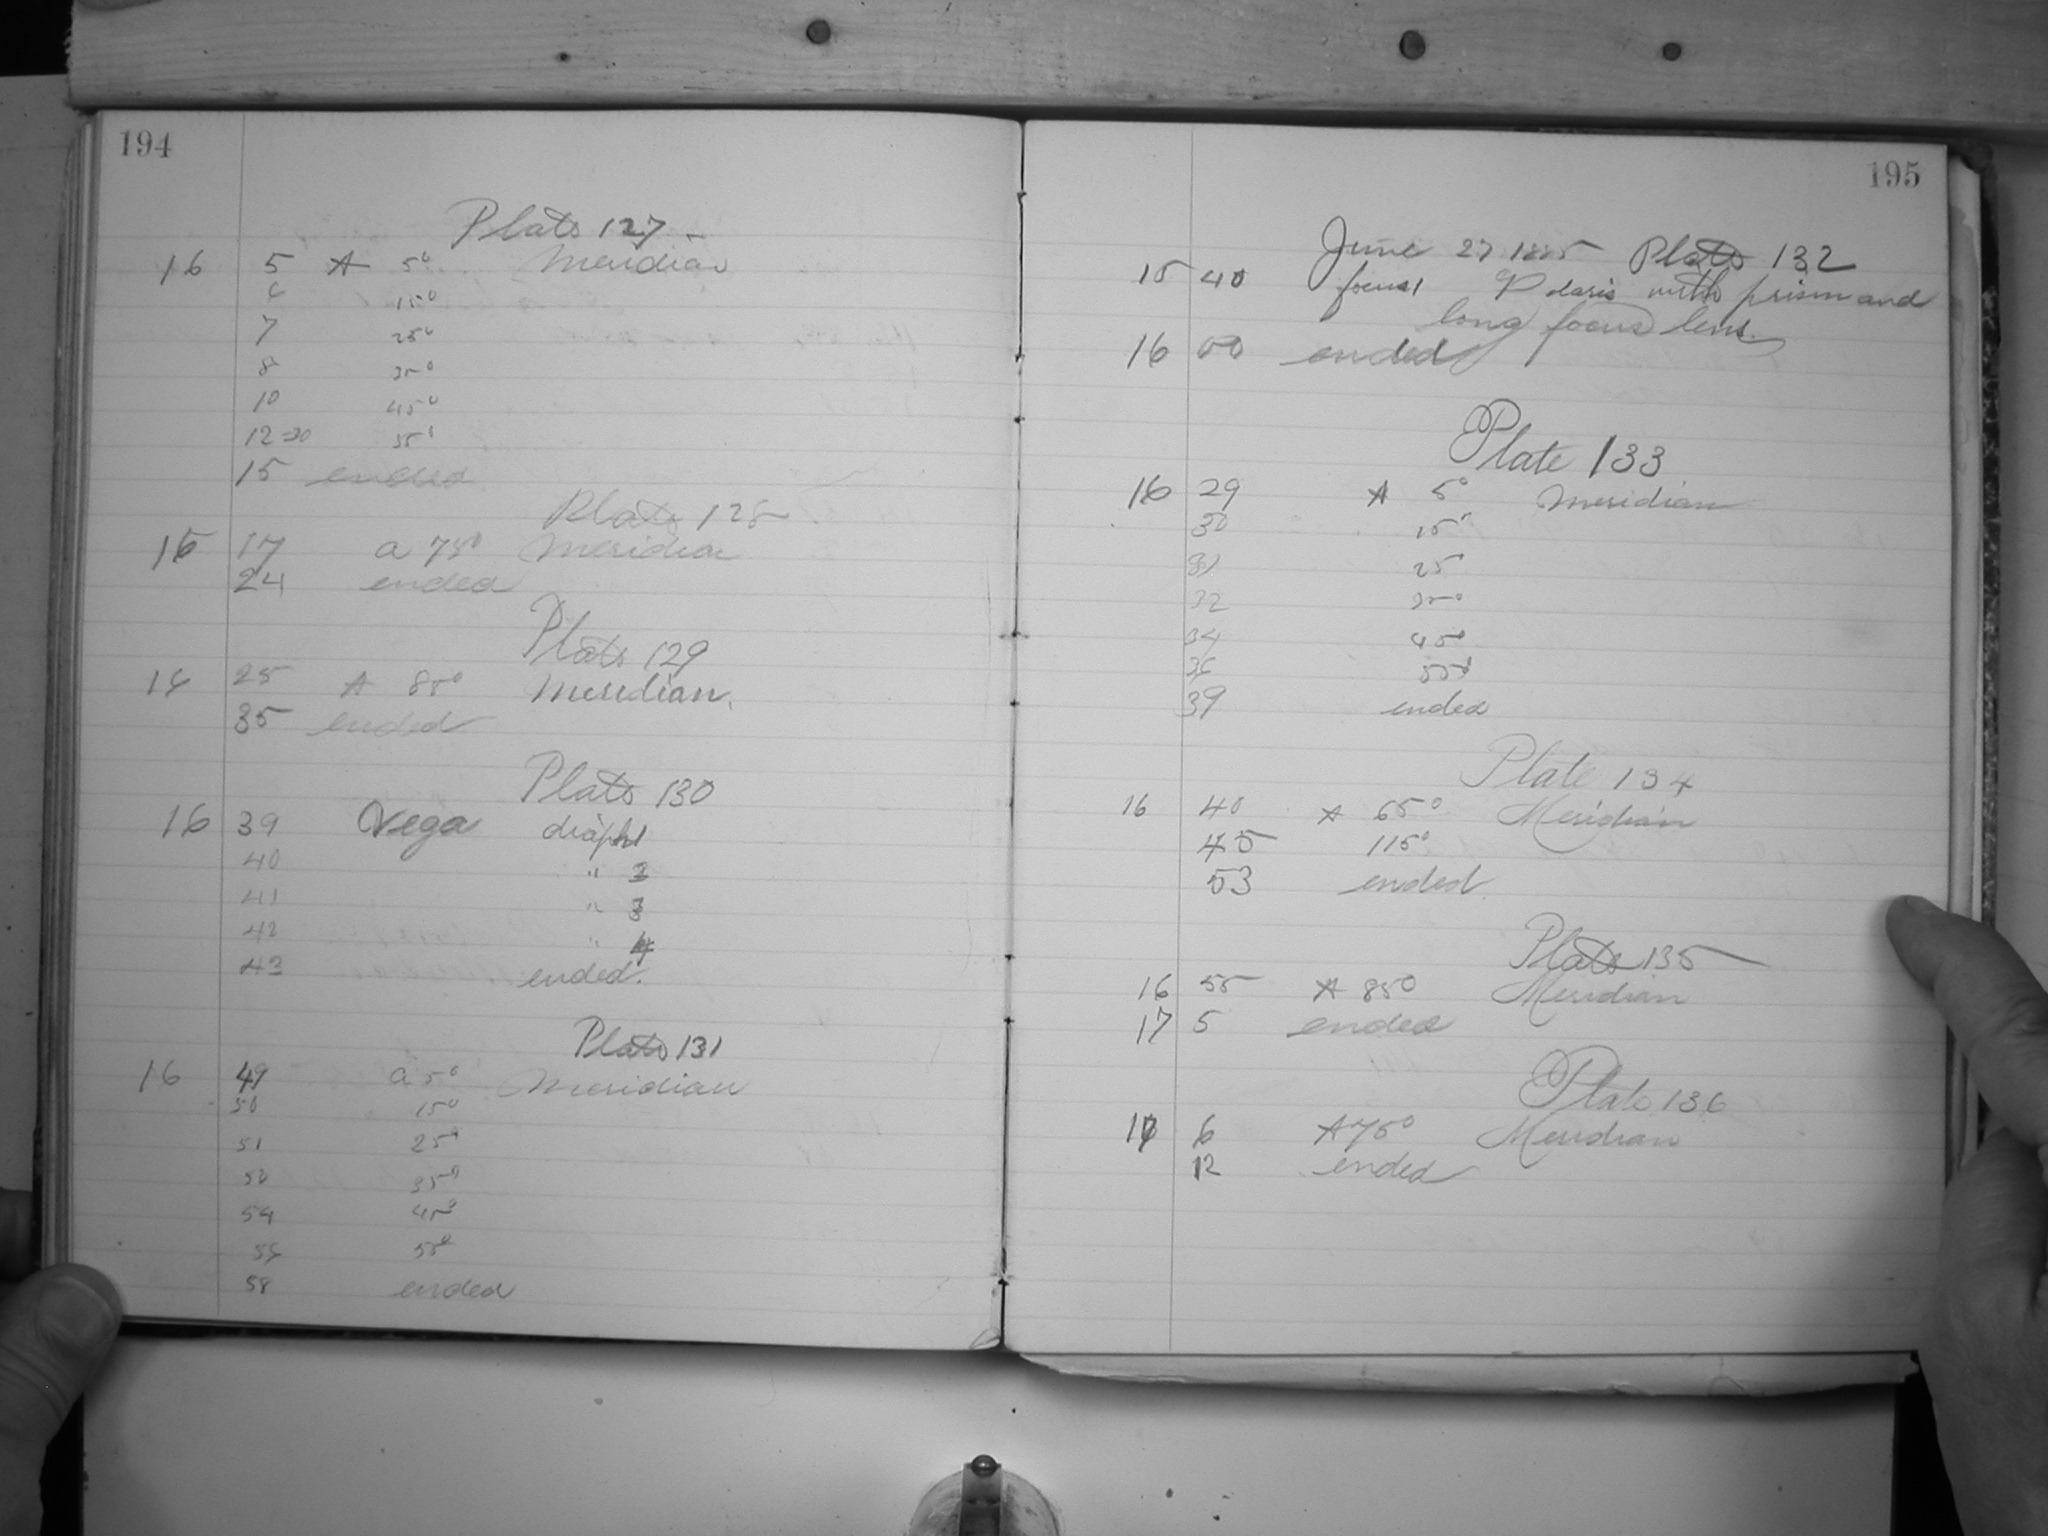 194
Plate 127
16 5 A 5° Meridian
6 15°
7 25°
8 35°
10 45°
12-30 55°
15 ended
Plate 128
16 17 a 75° Meridian
24 ended
Plate 129
16 25 A 85° Meridian.
35 ended
Plate 130
16 39 Vega diaph 1
40 " 2
41 " 3
42 " 4
43 ended.
Plate 131
16 49 a 5° Meridian
50 15°
51 25°
35°
54 45°
56 55°
58 ended
195
June 27 1885 Plate 132
15 40 focus, Polaris with prism and
long focus lens.
16 00 ended
Plate 133
16 29 A 5° Meridian
30 15°
31 25
32 35°
34 45°
36 55°
39 ended
Plate 134
16 40 A 65° Meridian
45 115°
53 ended
Plate 135
16 55 A 85° Meridian
17 5 ended
Plate 136
17 6 A 75° Meridian
12 ended